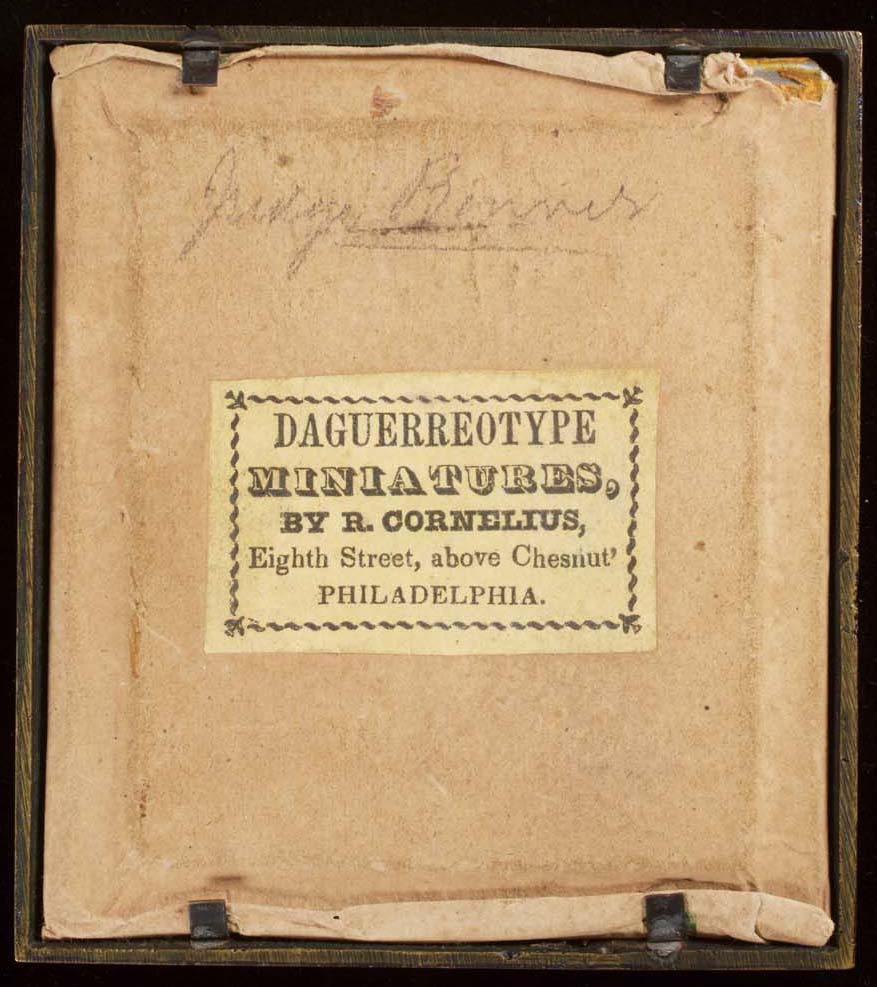 Judge
DAGUERREOTYPE
MINIATURES,
BY R. CORNELIUS,
Eighth Street, above Chesnut’
PHILADELPHIA.